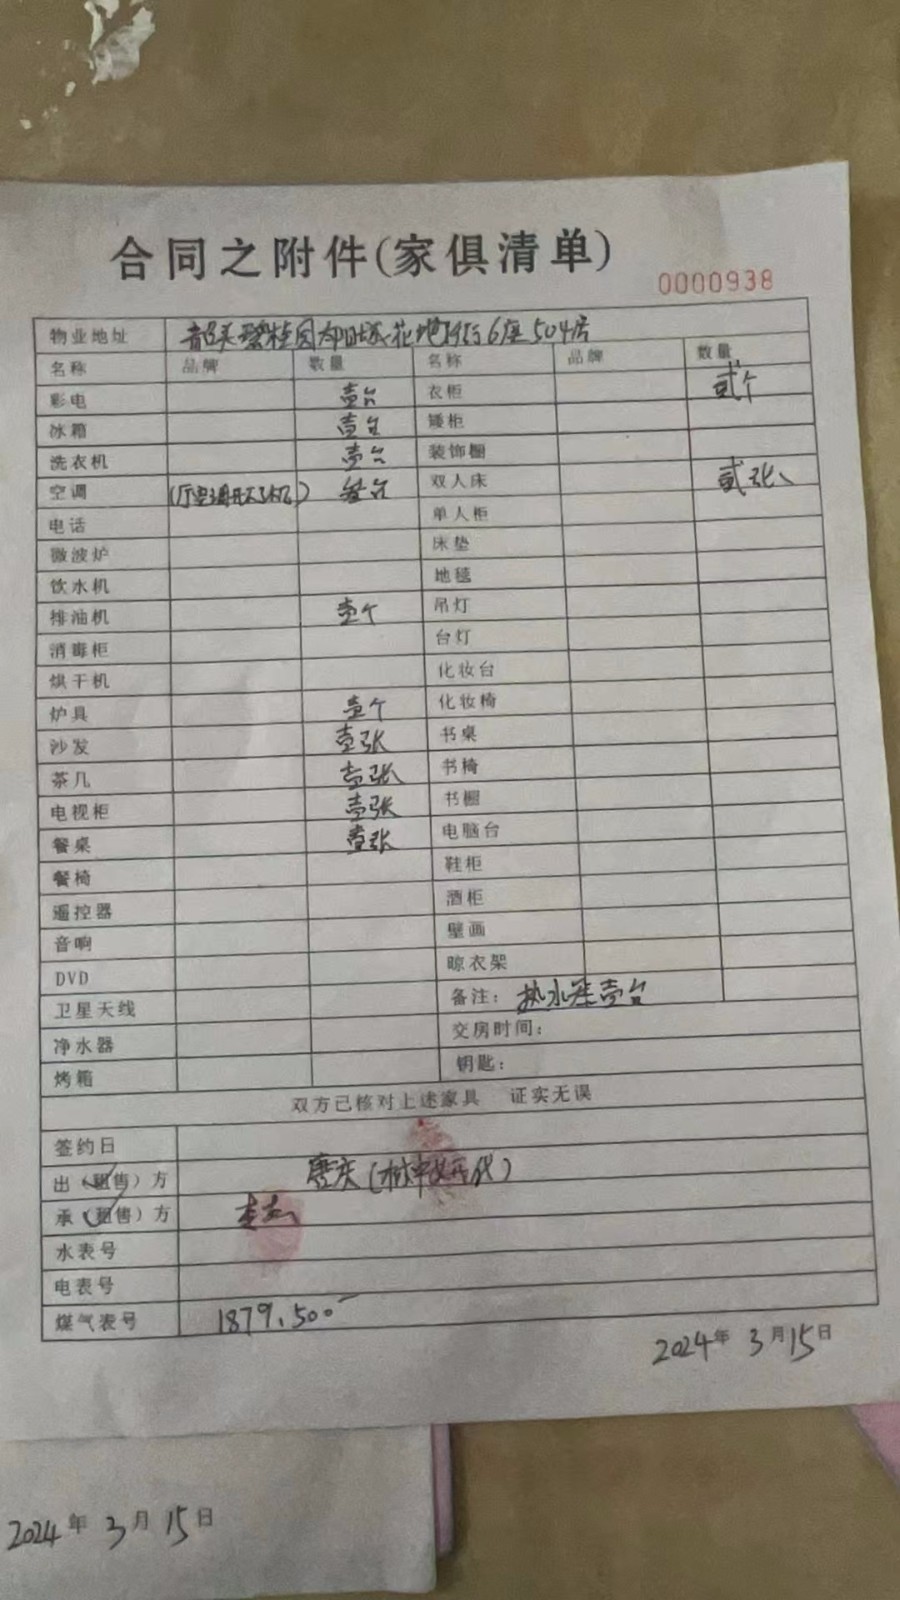 合同之附件(家俱清单)
0000938
物业地址 韶关碧桂园太阳城花地 6座504房
名称 品牌 数量 名称 品牌 数量
彩电 壹台 衣柜 贰个
冰箱 壹台 矮柜
洗衣机 壹台 装饰橱
空调 (厅空调开不了机) 台 双人床 贰张
电话 单人柜
微波炉 床垫
饮水机 地毯
排油机 壹个 吊灯
消毒柜 台灯
烘干机 化妆台
炉具 壹个 化妆椅
沙发 壹张 书桌
茶几 壹张 书椅
电视柜 壹张 书橱
餐桌 壹张 电脑台
餐椅 鞋柜
遥控器 酒柜
音响 壁画
DVD 晾衣架
卫星天线 备注: 热水器壹台
净水器 交房时间:
烤箱 钥匙:
双方已核对上述家具 证实无误
签约日
出(租售)方
承(租售)方
水表号
电表号
煤气表号 1879.500
2024年 3月15日
2024年 3月15日